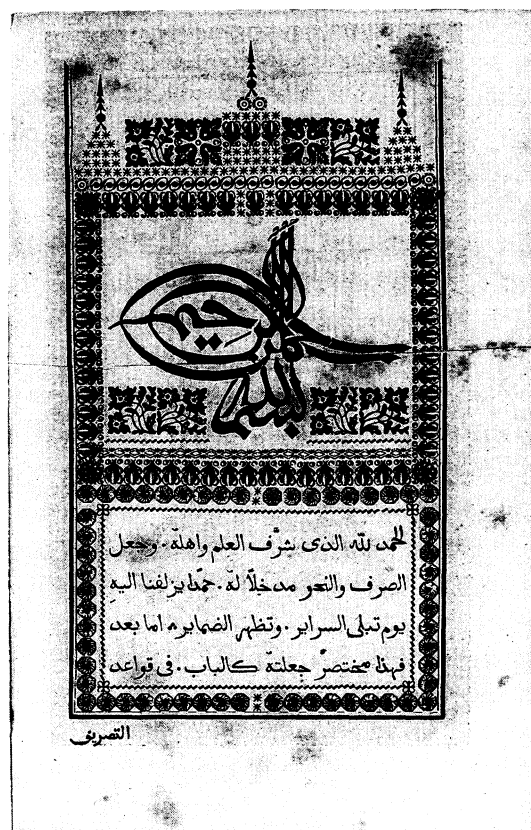 بسم الله الرحمن الرحيم
الحمد لله الذى شرَّف العلم واهلهُ. وجعل
الصرف والنحو مدخلاً لهُ. حمدًا يزلفنا اليهِ
يوم تبلى السراير. وتظهر الضماير، اما بعد
فهذا مختصرٌ جعلتهُ كالباب. فى قواعد
التصريف